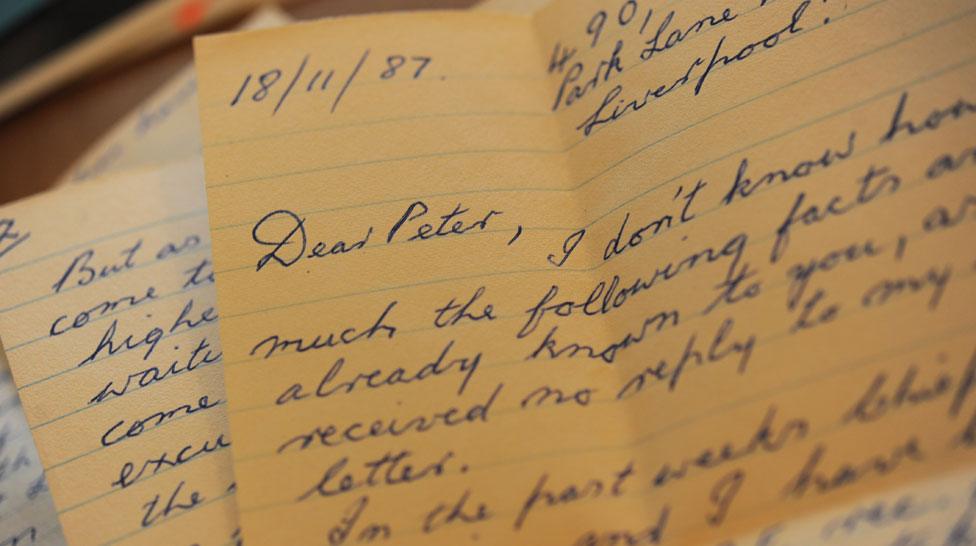 18/11/87.
490,
Park Lane
Liverpool.
Dear Peter,
I don't know how
much the following facts are
already known to you,
received no reply to my
letter.
In the past weeks Chief
and I have
But as
come to
highe
waite
come
excu
the